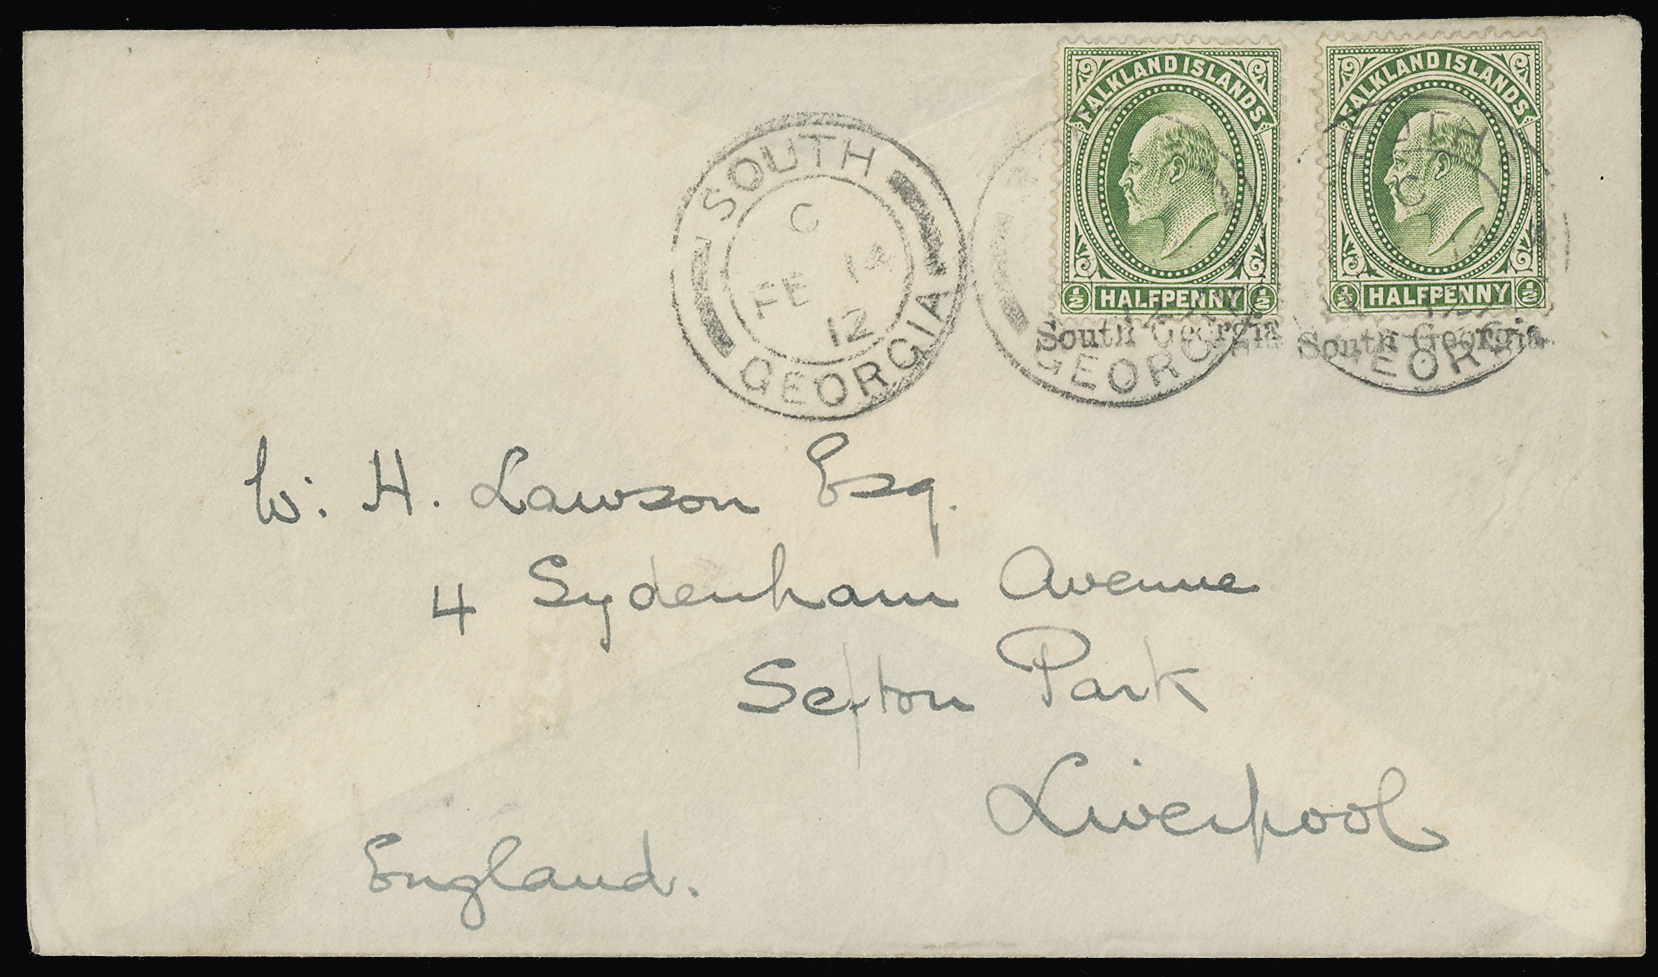 FALKLAND ISLANDS
½ HALFPENNY ½
South Georgia
FALKLAND ISLANDS
½ HALFPENNY ½
South Georgia
SOUTH
C
FE 14
12
GEORGIA
GEORGIA
C
14
GEORGIA
W: H. Lawson Esq.
4 Sydenham Avenue
Sefton Park
Liverpool
England.